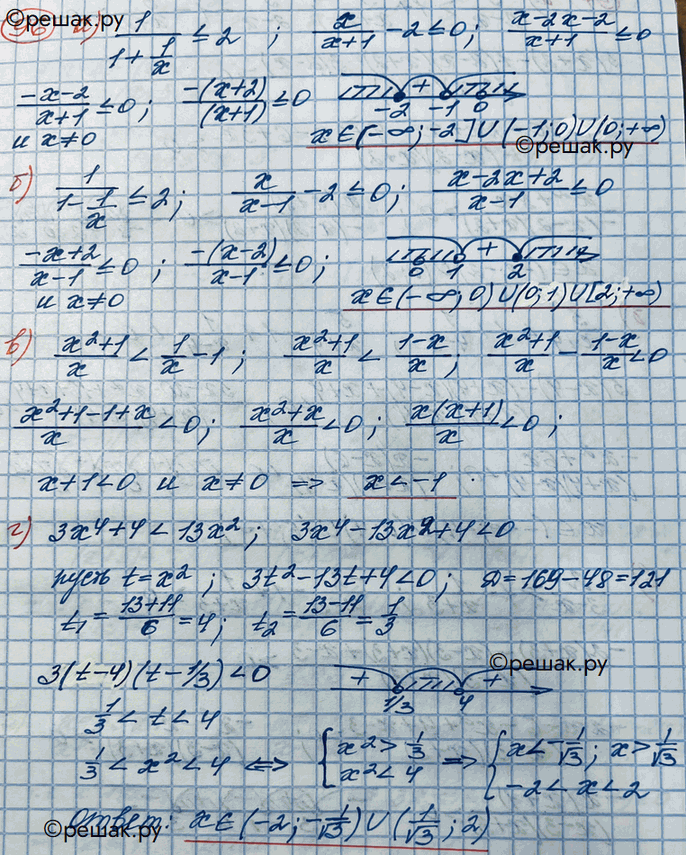 ©решак.ру
36 а) 1/(1+1/x) ≤ 2 ; x/(x+1) − 2 ≤ 0 ; (x−2x−2)/(x+1) ≤ 0
(−x−2)/(x+1) ≤ 0 ; −(x+2)/(x+1) ≤ 0 + −2 −1 0
и x≠0 x∈(−∞; −2]∪(−1; 0)∪(0; +∞)
©решак.ру
б) 1/(1−1/x) ≤ 2 ; x/(x−1) − 2 ≤ 0 ; (x−2x+2)/(x−1) ≤ 0
(−x+2)/(x−1) ≤ 0 ; −(x−2)/(x−1) ≤ 0 ; + 0 1 2
и x≠0 x∈(−∞; 0)∪(0; 1)∪[2; +∞)
в) (x²+1)/x < 1/x − 1 ; (x²+1)/x < (1−x)/x ; (x²+1)/x − (1−x)/x < 0
(x²+1−1+x)/x < 0 ; (x²+x)/x < 0 ; x(x+1)/x < 0 ;
x+1<0 и x≠0 => x<−1
г) 3x⁴+4 < 13x² ; 3x⁴−13x²+4<0
пусть t=x² ; 3t²−13t+4<0 ; D=169−48=121
t₁ = (13+11)/6 = 4 ; t₂ = (13−11)/6 = 1/3
©решак.ру
3(t−4)(t−1/3)<0 + + 1/3 4
1/3 < t < 4
1/3 < x² < 4 <=> { x² > 1/3 x² < 4 => { x<−1/√3 ; x>1/√3 −2<x<2
Ответ: x∈(−2; −1/√3)∪(1/√3; 2)
©решак.ру